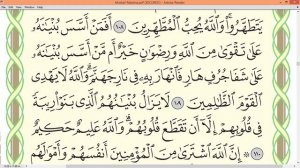 يَتَطَهَّرُوا۟ وَٱللَّهُ يُحِبُّ ٱلْمُطَّهِّرِينَ ١٠٨ أَفَمَنْ أَسَّسَ بُنْيَٰنَهُۥ
عَلَىٰ تَقْوَىٰ مِنَ ٱللَّهِ وَرِضْوَٰنٍ خَيْرٌ أَم مَّنْ أَسَّسَ بُنْيَٰنَهُۥ
عَلَىٰ شَفَا جُرُفٍ هَارٍ فَٱنْهَارَ بِهِۦ فِى نَارِ جَهَنَّمَ وَٱللَّهُ لَا يَهْدِى
ٱلْقَوْمَ ٱلظَّٰلِمِينَ ١٠٩ لَا يَزَالُ بُنْيَٰنُهُمُ ٱلَّذِى بَنَوْا۟ رِيبَةً
فِى قُلُوبِهِمْ إِلَّآ أَن تَقَطَّعَ قُلُوبُهُمْ وَٱللَّهُ عَلِيمٌ حَكِيمٌ
١١٠ إِنَّ ٱللَّهَ ٱشْتَرَىٰ مِنَ ٱلْمُؤْمِنِينَ أَنفُسَهُمْ وَأَمْوَٰلَهُم